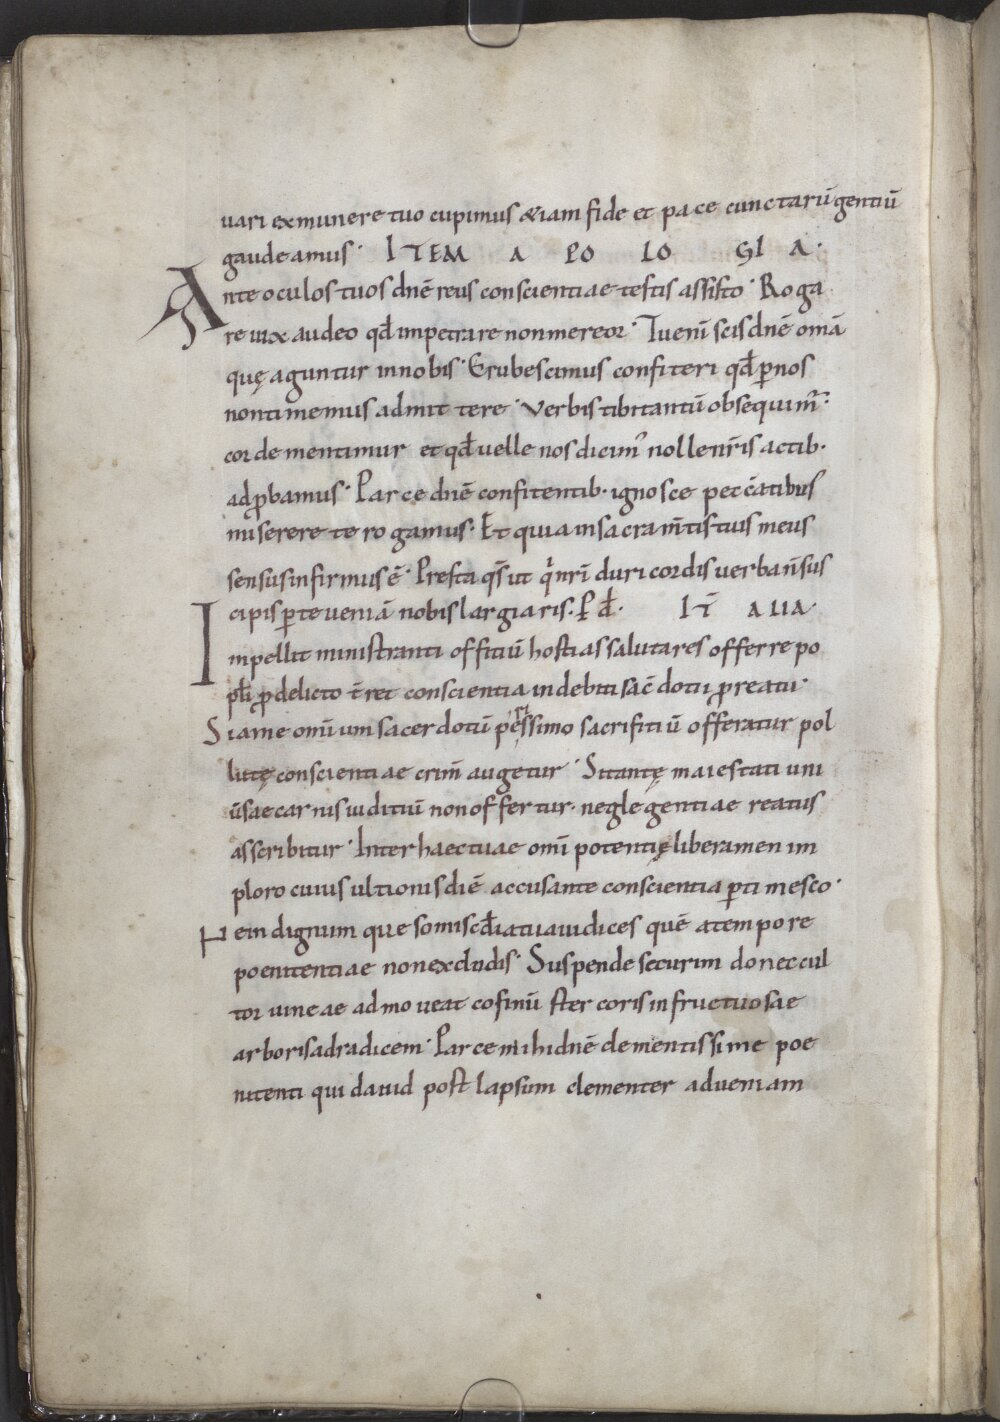 uari ex munere tuo cupimus &iam fide et pace cunctarū gentiū
gaudeamus· ITEM APOLOGIA·
Ante oculos tuos dnē reus conscientiae testis assisto· Roga
re uix audeo qđ impetrare non mereor· Tu enī scis dnē omā
quę aguntur in nobis· Erubescimus confiteri qđ ꝑ nos
non timemus admittere· Verbis tibi tantū obsequim̄·
corde mentimur et qđ uelle nos dicim̄ nolle nr̄is actib·
adꝓbamus· Parce dnē confitentib· ignosce peccātibus
miserere te rogamus· Et quia in sacram̄tis tuis meus
sensus infirmus ē· Presta qs̄ ut q̄ nr̄i duri cordis uerba ñ sus
cipis ꝑ te ueniā nobis largiaris· P đ· IT̄ ALIA·
Impellit ministranti offitiū hostias salutares offerre po
pli ꝓ delicto t̄ret conscientia indebiti sac̄dotii ꝓ reatu·
Si a me omīum sacerdotū pessimo sacrifitiū offeratur pol
lutę conscientiae crim̄ augetur· Si tantę maiestati uni
ūsae carnis iuditiū non offertur· neglegentiae reatus
asscribitur· Inter haec tuae omī potentię liberamen im
ploro cuius ultionis diē accusante conscientia ꝑtimesco·
Ne indignum queso mis̄cđia tua iudices quē a tempore
poenitentiae non excludis· Suspende securim donec cul
tor uineae admoueat cofinū stercoris infructuosae
arboris ad radicem· Parce mihi dnē clementissime poe
nitenti qui dauid post lapsum clementer ad ueniam